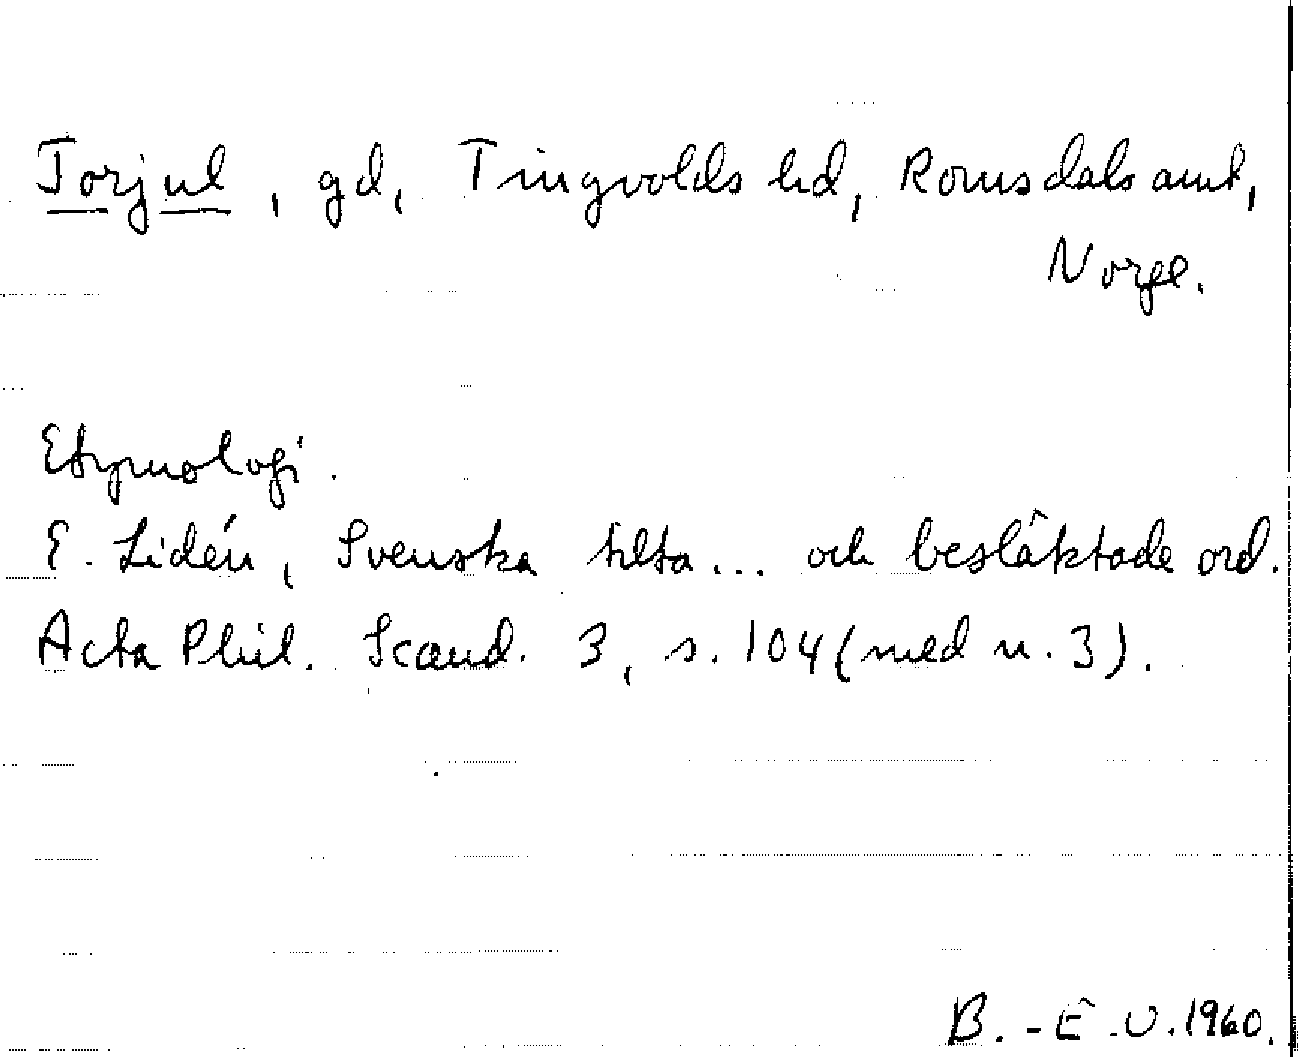 Torjul, gd, Tingvolds hd, Romsdals amt,
Norge.
Etymologi.
E. Lidén, Svenska tilta... och besläktade ord.
Acta Phil. Scand. 3, s. 104 (med n. 3).
B.-E. U. 1960.